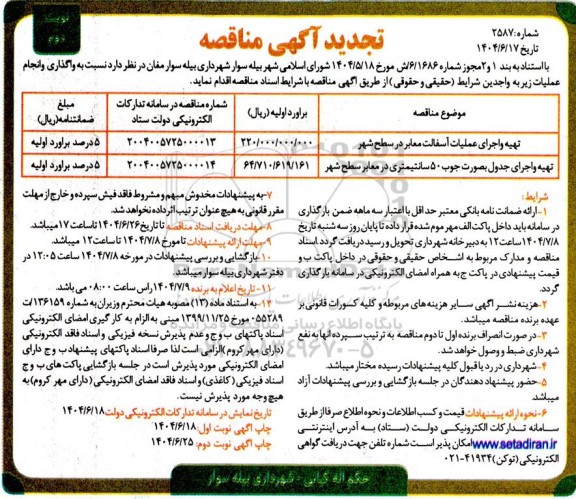 نوبت دوم
تجدید آگهی مناقصه
شماره: ۲۵۸۷
تاریخ ۱۴۰۴/۶/۱۷
با استناد به بند ۱ و ۲ مجوز شماره ۶/۱۶۸۶/ش مورخ ۱۴۰۴/۵/۱۸ شورای اسلامی شهر بیله سوار شهرداری بیله سوار مغان در نظر دارد نسبت به واگذاری و انجام
عملیات زیر به واجدین شرایط (حقیقی و حقوقی) از طریق آگهی مناقصه با شرایط اسناد مناقصه اقدام نماید.
موضوع مناقصه | برآورد اولیه (ریال) | شماره مناقصه در سامانه تدارکات الکترونیکی دولت ستاد | مبلغ ضمانتنامه (ریال)
تهیه و اجرای عملیات آسفالت معابر در سطح شهر | ۲۲۰/۰۰۰/۰۰۰/۰۰۰ | ۲۰۰۴۰۰۵۷۲۵۰۰۰۰۱۳ | ۵ درصد برآورد اولیه
تهیه و اجرای جدول بصورت جوب ۵۰ سانتیمتری در معابر سطح شهر | ۶۴/۷۱۰/۶۱۹/۱۶۱ | ۲۰۰۴۰۰۵۷۲۵۰۰۰۰۱۴ | ۵ درصد برآورد اولیه
شرایط:
۱-ارائه ضمانت نامه بانکی معتبر حداقل با اعتبار سه ماهه ضمن بارگذاری
در سامانه باید داخل پاکت الف مهر و موم شده قرار داده تا پایان روز سه شنبه تاریخ
۱۴۰۴/۷/۸ ساعت ۱۲ به دبیرخانه شهرداری تحویل و رسید دریافت گردد. اسناد
مناقصه و مدارک مربوط به اشخاص حقیقی و حقوقی در داخل پاکت ب و
قیمت پیشنهادی در پاکت ج به همراه امضای الکترونیکی در سامانه بارگذاری
گردد.
۲-هزینه نشر آگهی سایر هزینه های مربوطه و کلیه کسورات قانونی بر
عهده برنده مناقصه میباشد.
۳-در صورت انصراف برنده اول تا دوم مناقصه به ترتیب سپرده آنها به نفع
شهرداری ضبط و وصول خواهد شد.
۴-شهرداری در رد یا قبول کلیه پیشنهادات رسیده مختار میباشد.
۵-حضور پیشنهاد دهندگان در جلسه بازگشایی و بررسی پیشنهادات آزاد
میباشد.
۶-نحوه ارائه پیشنهادات قیمت و کسب اطلاعات و نحوه اطلاع صرفا از طریق
سامانه تدارکات الکترونیکی دولت (ستاد) به آدرس اینترنتی
www.setadiran.ir امکان پذیر است شماره تلفن جهت دریافت گواهی
الکترونیکی (توکن) ۴۱۹۳۴-۰۲۱
۷-به پیشنهادات مخدوش مبهم و مشروط فاقد فیش سپرده و خارج از مهلت
مقرر قانونی به هیچ عنوان ترتیب اثر داده نخواهد شد.
۸-مهلت دریافت اسناد مناقصه تا تاریخ ۱۴۰۴/۶/۲۶ تا ساعت ۱۷ میباشد.
۹-مهلت ارائه پیشنهادات تا مورخ ۱۴۰۴/۷/۸ تا ساعت ۱۲ میباشد.
۱۰-بازگشایی و بررسی پیشنهادات در مورخه ۱۴۰۴/۷/۸ ساعت ۱۲:۰۵ در
دفتر شهرداری بیله سوار میباشد.
۱۱-تاریخ اعلام به برنده ۱۴۰۴/۷/۹ راس ساعت ۰۸:۰۰ می باشد.
۱۲-به استناد ماده (۱۳) مصوبه هیات محترم وزیران به شماره ۱۳۶۱۵۹/ت
۰۵۵۲۸۹ مورخ ۱۳۹۹/۱۱/۲۵ مبنی به الزام به کارگیری امضای الکترونیکی
اسناد پاکتهای ب و ج و عدم پذیرش نسخه فیزیکی و اسناد فاقد الکترونیکی
(دارای مهر کروم) الزامی است لذا صرفا اسناد پاکتهای پیشنهاد ب و ج دارای
امضای الکترونیکی مورد پذیرش است در جلسه بازگشایی پاکت های ب و ج
اسناد فیزیکی (کاغذی) و اسناد فاقد امضای الکترونیکی (دارای مهر کروم) به
هیچ وجه مورد پذیرش نیست.
تاریخ نمایش در سامانه تدارکات الکترونیکی دولت ۱۴۰۴/۶/۱۸
چاپ آگهی نوبت اول: ۱۴۰۴/۶/۱۸
چاپ آگهی نوبت دوم: ۱۴۰۴/۶/۲۵
حکم اله کیانی - شهرداری بیله سوار